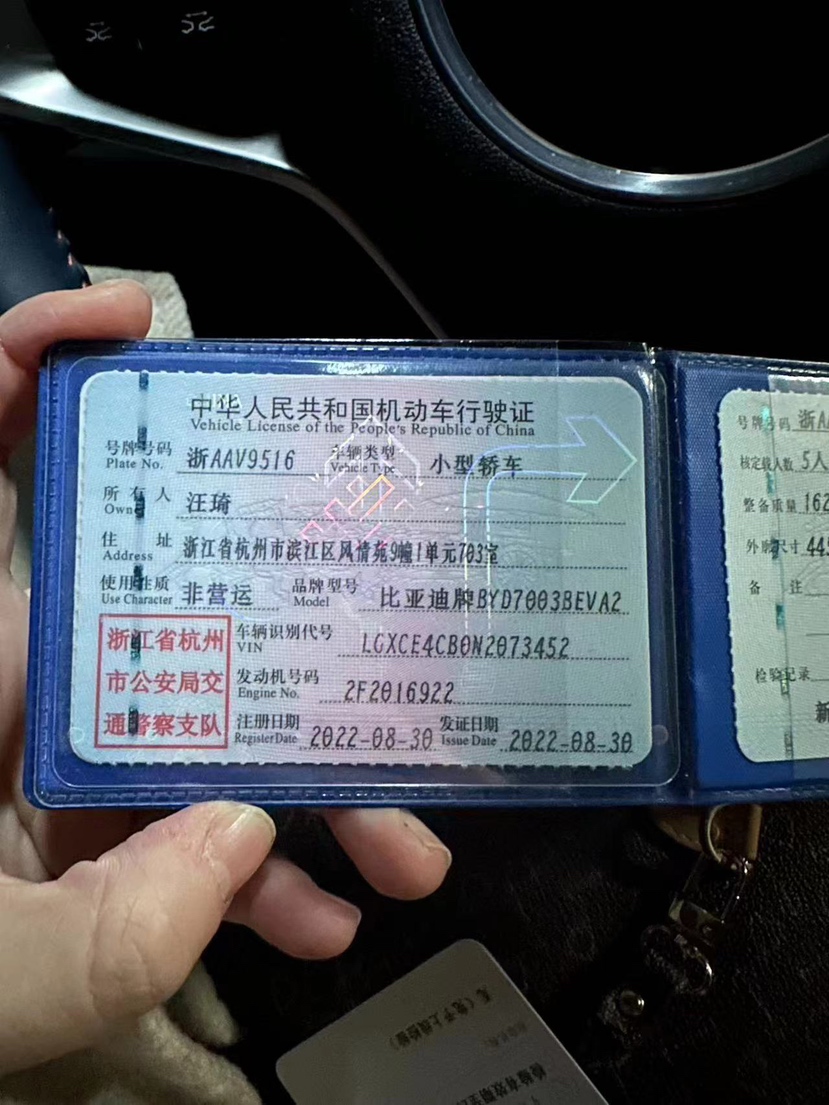 中华人民共和国机动车行驶证
Vehicle License of the People's Republic of China
号牌号码 浙AAV9516 车辆类型 小型轿车
Plate No. Vehicle Type
所有人 汪琦
Owner
住址 浙江省杭州市滨江区风情苑9幢1单元703室
Address
使用性质 非营运 品牌型号 比亚迪牌BYD7003BEVA2
Use Character Model
浙江省杭州
市公安局交
通警察支队
车辆识别代号 LGXCE4CB0N2073452
VIN
发动机号码 2F2016922
Engine No.
注册日期 2022-08-30 发证日期 2022-08-30
Register Date Issue Date
号牌号码 浙A
核定载人数 5人
整备质量 162
外廓尺寸 44
备注
检验记录
新